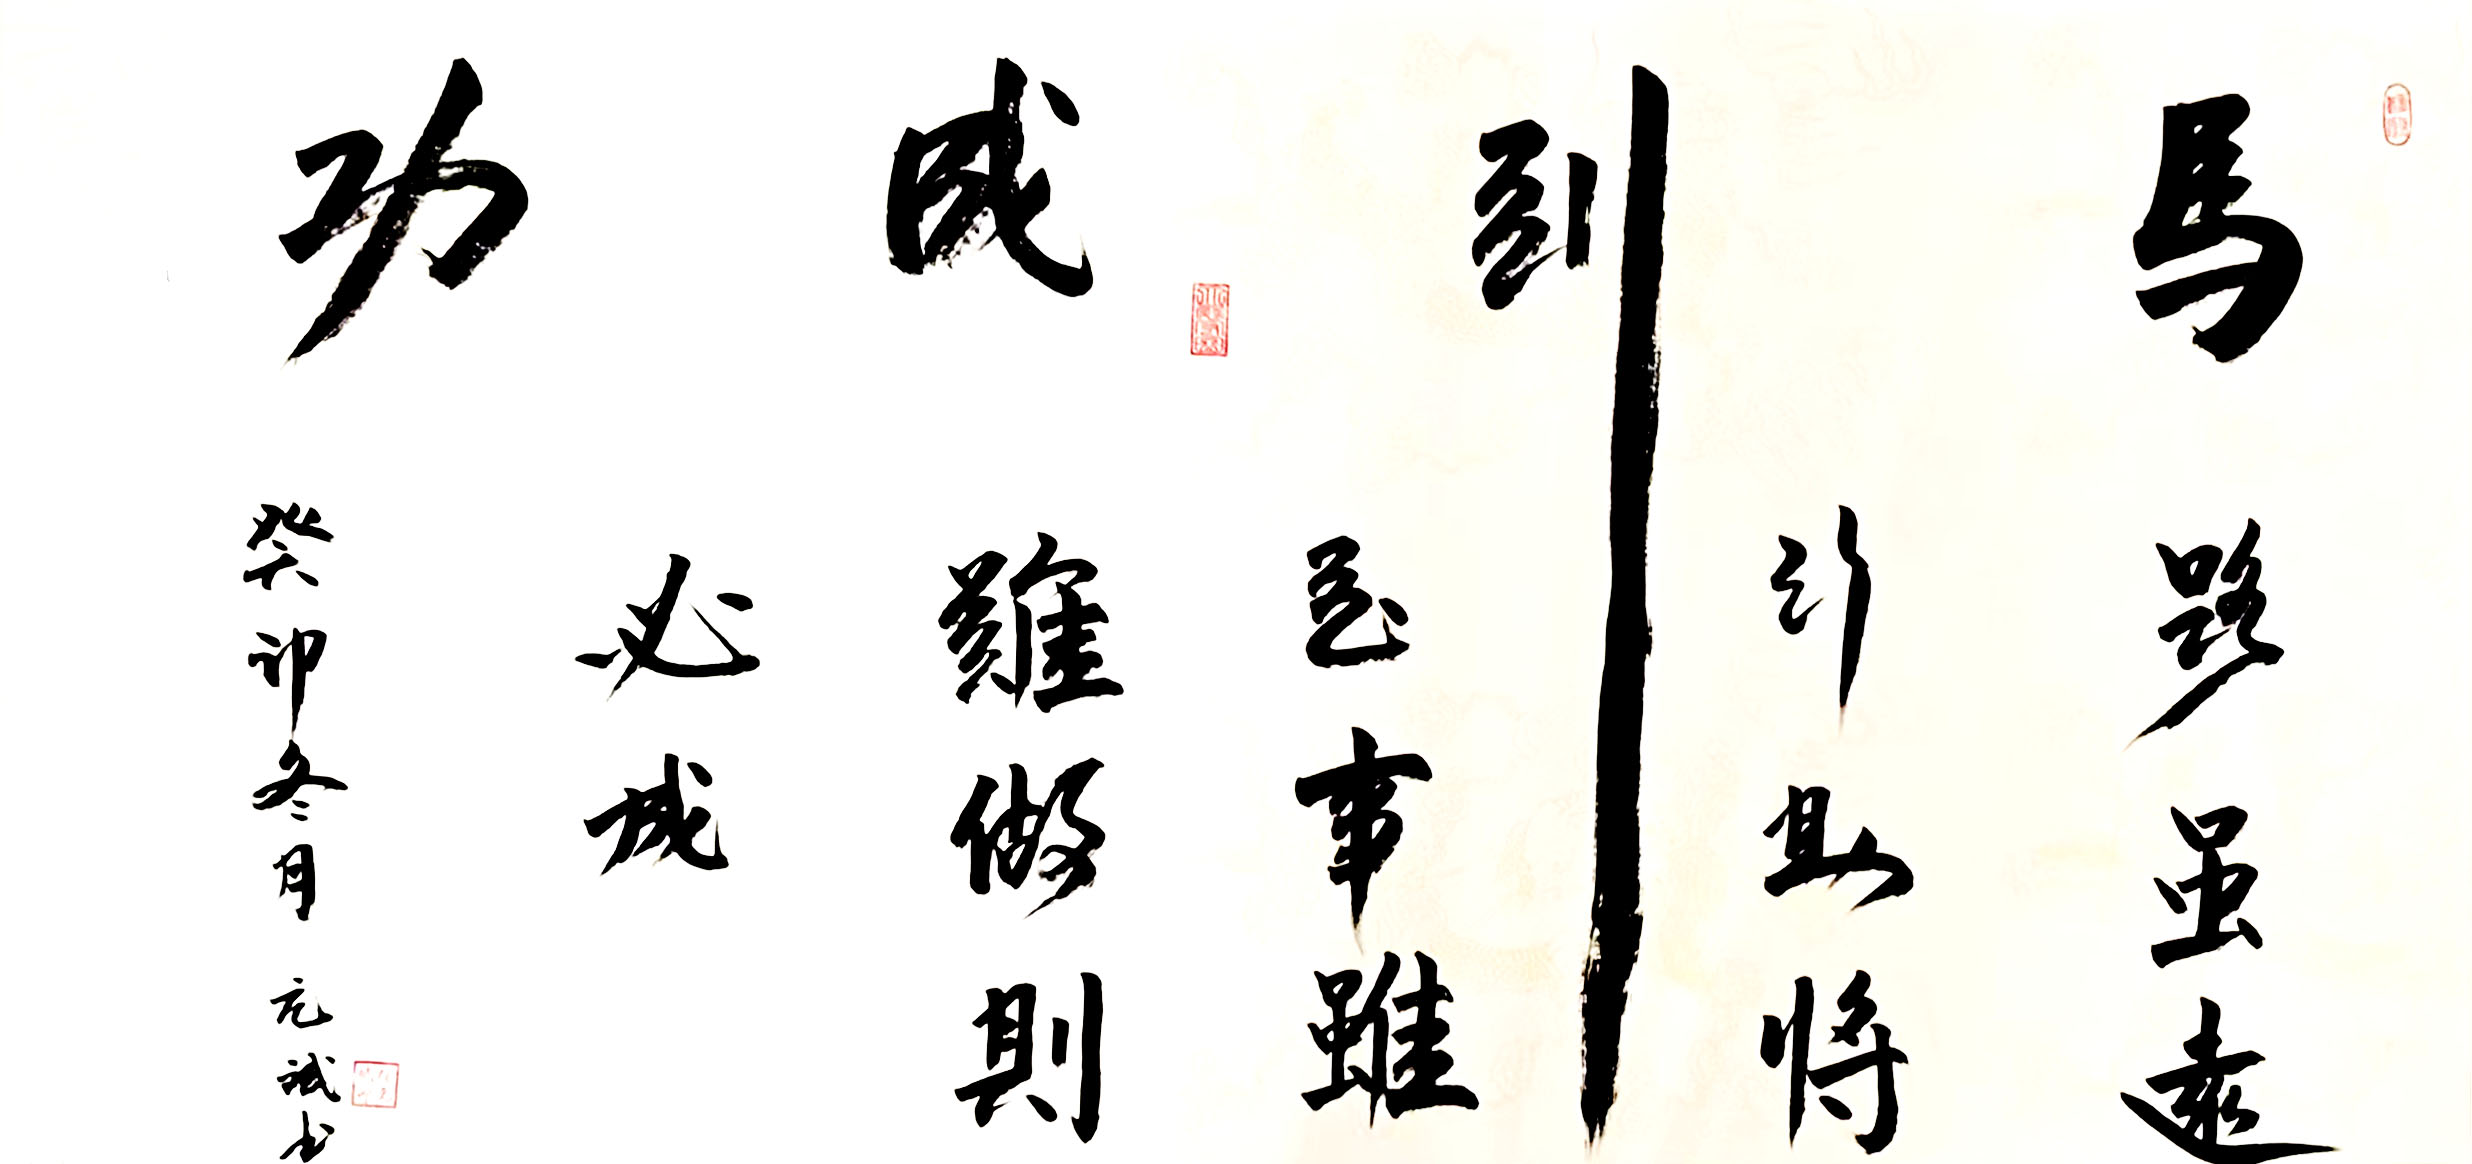 馬到成功
路虽遠
行则將
至事雖
難做則
必成
癸卯冬月 元诚书